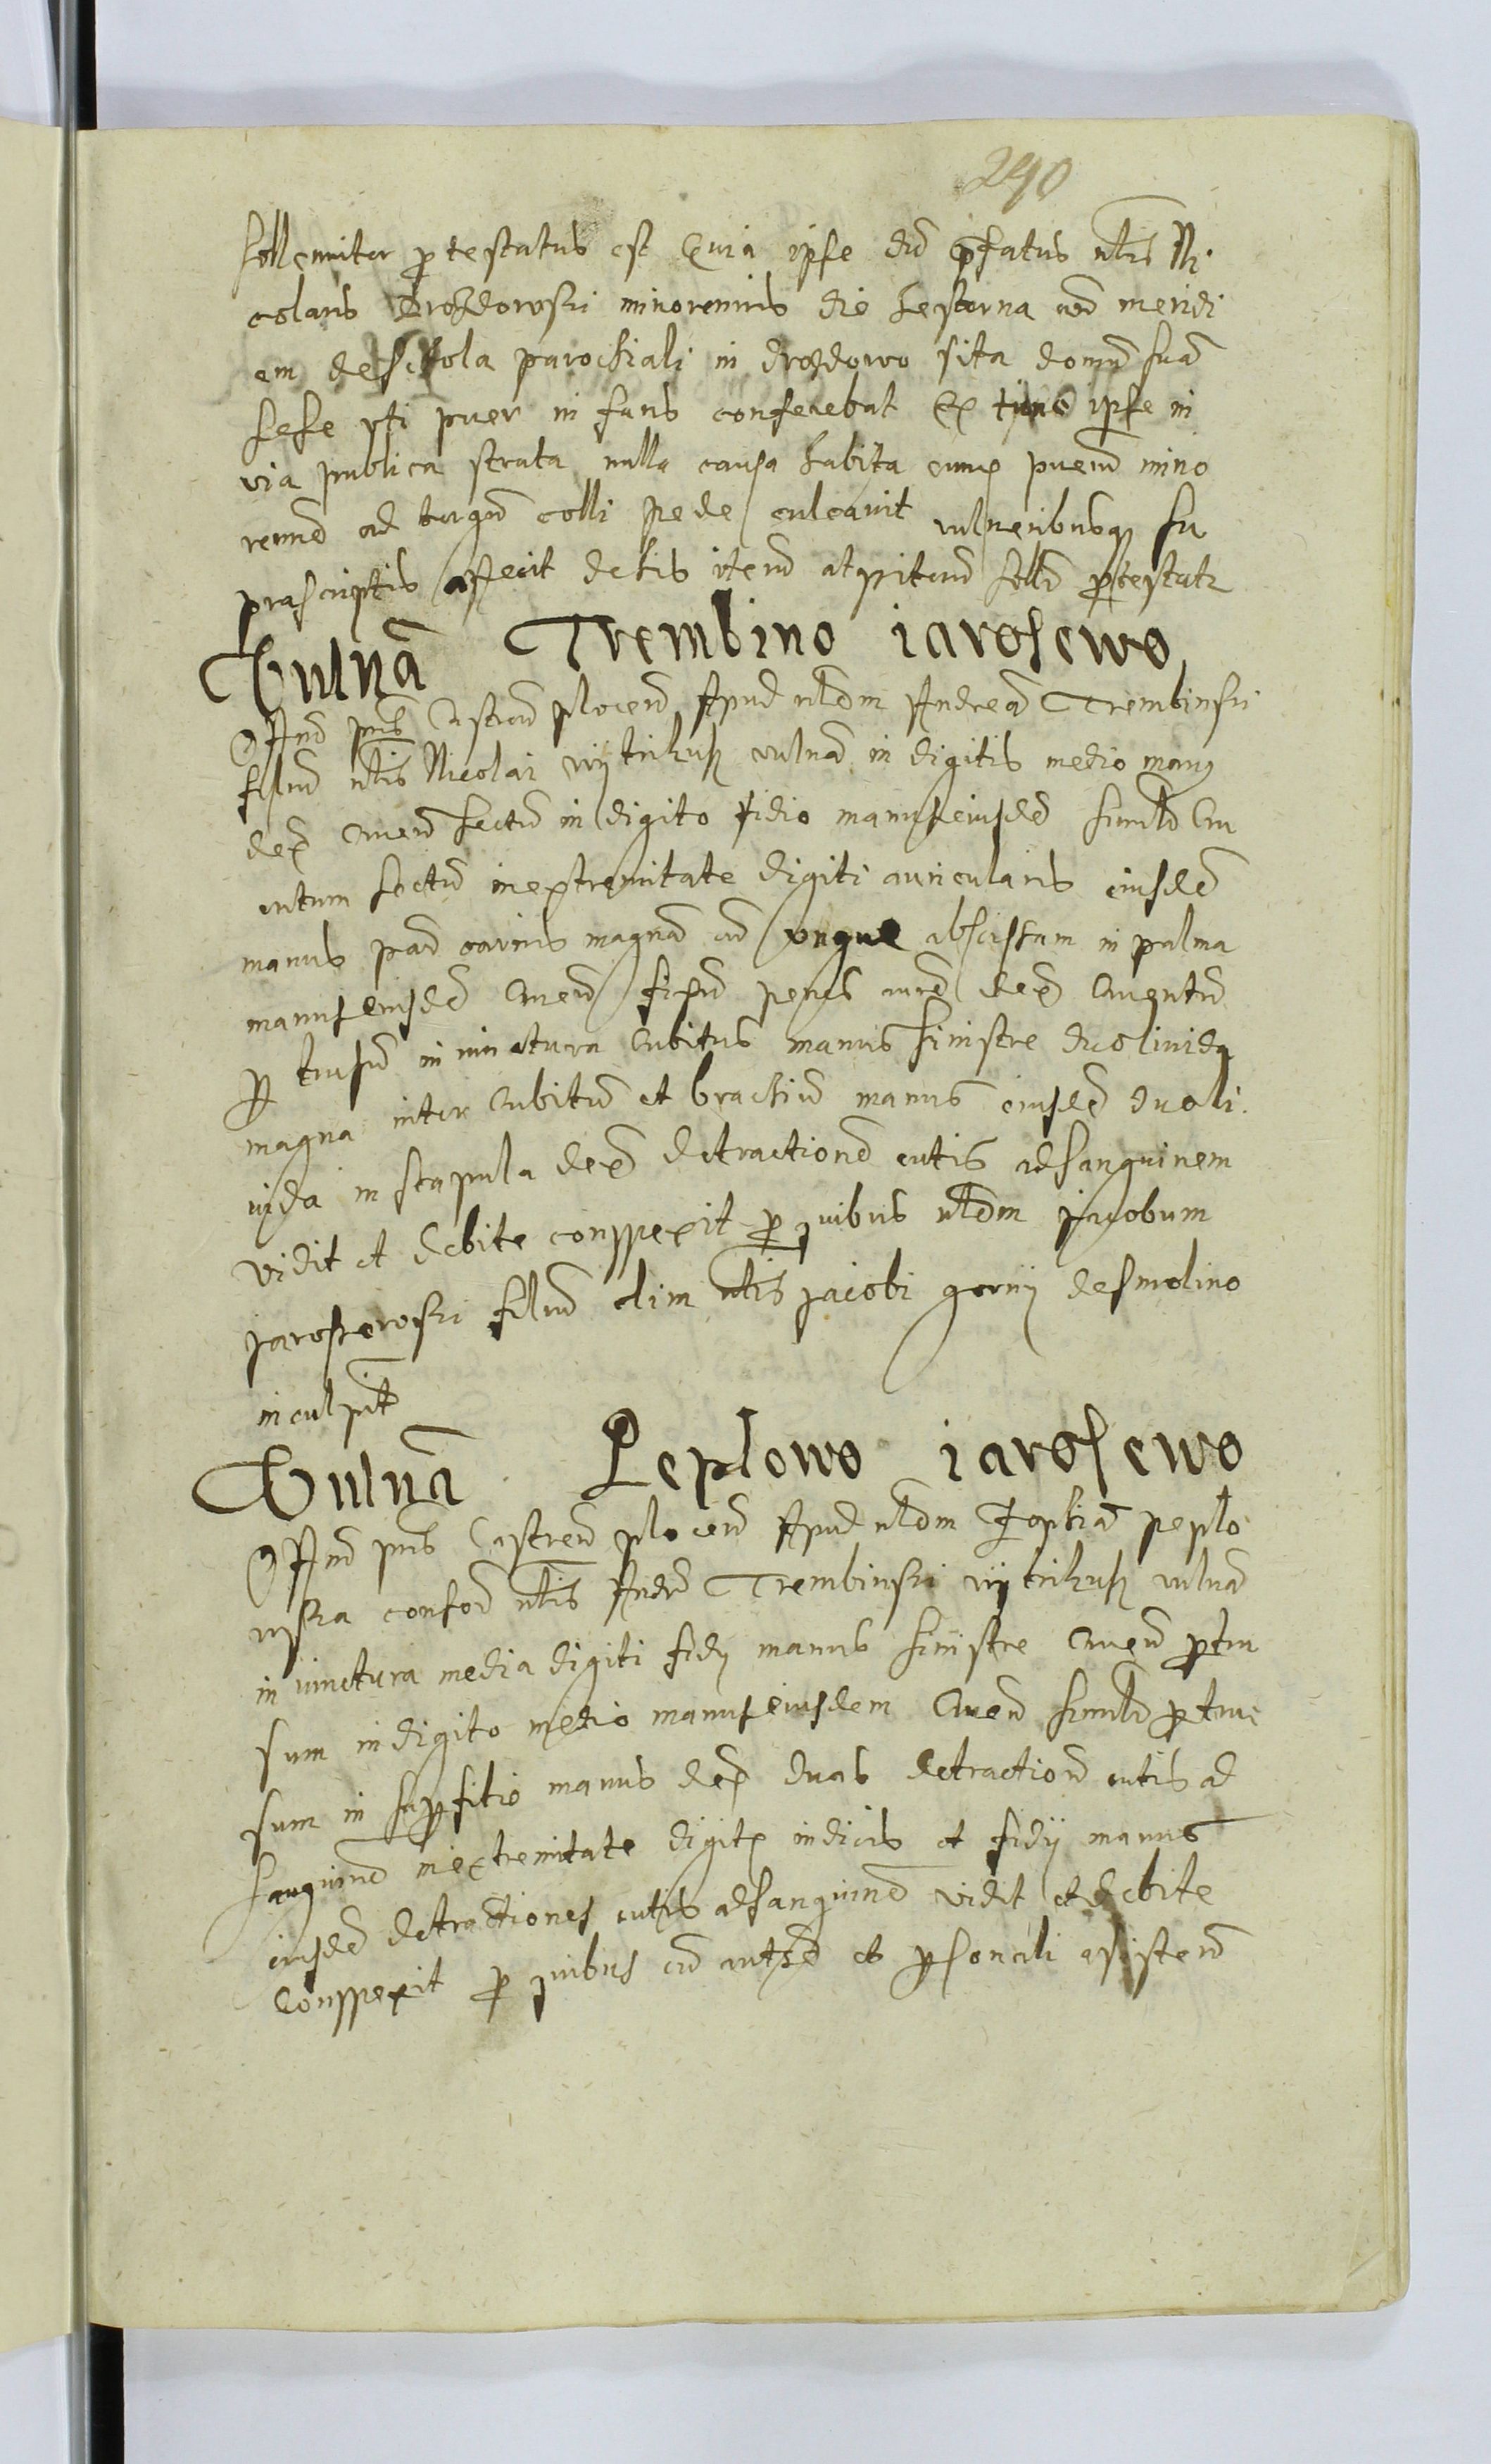 290
sollemniter protestatus est Quia ipse dum prefatus nlis Ni
colaus Drozdowski minorennis die hesterna ad meridi
em de schola parochiali in drozdowo sita domum suam
sese vti puer in fans conferebat Ex tunc ipse in
via publica strata nulla causa habita eump puerum mino
rennem ad tergum colli pede culcavit vulneribusq su
prascriptis affecit de his iterum atq iterum soll protestatr
Vulna Trembino iarosewo
Ministerialis Castren plocen Apud nldm Andream Trembinski
filium nlis Nicolai vijtrikusz vulna in digitis medio manus
dex Cruen sectum in digito fidio manus eiusdem simile Cru
entum sectum in extremitate digiti auricularis eiusdem
manus pad carnis magnam ad vngue abscissam in palma
manus eiusdem Cruen fixum penes aurem dex Cruentum
per tusum in iunctura Cubitus manus sinistre duo livida
magna inter Cubitum et brachium manus eiusdem duo li
vida in scapula dex detractionem cutis ad sanguinem
vidit et debite conspexit pro quibus nldm jacobum
jarosewski filium olim nlis jacobi gorny de smolino
inculpit
Vulna Peplowo iarosewo
pnts Castren plocen Apud nldm Zophiam peplo
wska consor nlis Andre Trembinski vijtrikusz vulna
in iunctura media digiti fidy manus sinistre Cruen pertu
sum in digito medio manus eiusdem Cruen simile pertu
sum in superfitio manus dex duas detraction cutis ad
sanguinem in extremitate digit indicis et fidij manus
eiusdem detractiones cutis ad sanguinem vidit et debite
Conspexit pro quibus et personali asisten